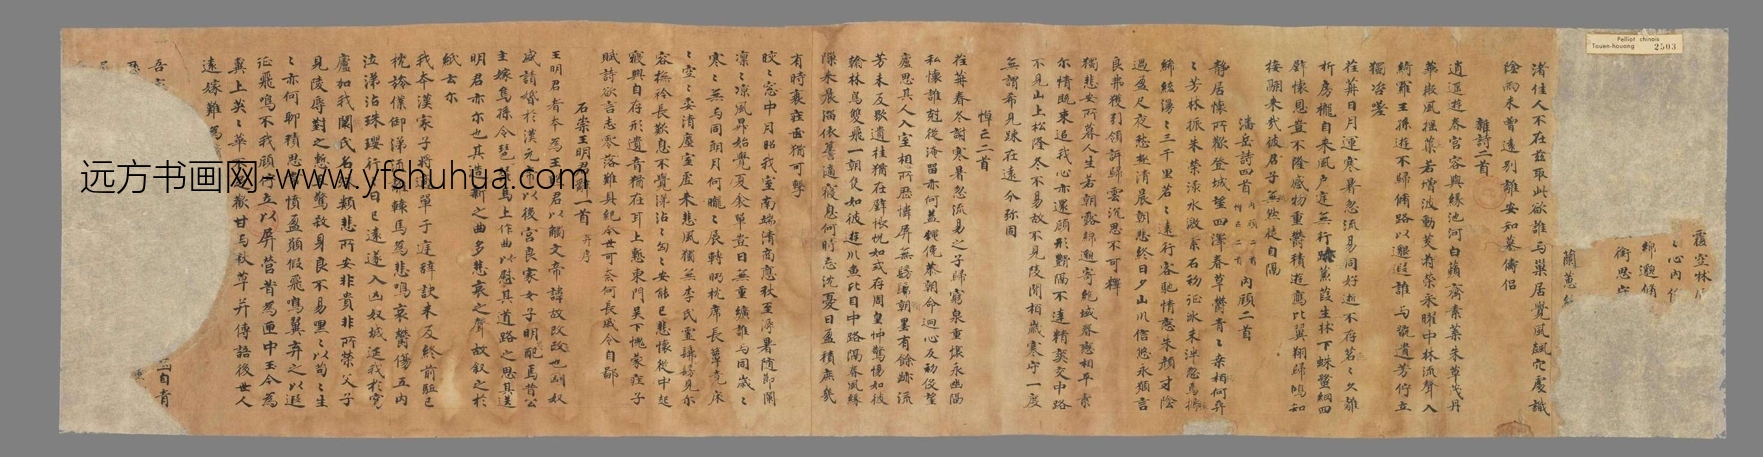 霞空林
〻心內
綿邈傾
銜思
蘭蕙
渚佳人不在茲取此欲誰与巢居覺風飆穴處識
陰雨未曾遠別離安知慕儔侶
雜詩二首
逍遙遊春宮容與緣池河白蘋齊素葉朱草茂丹
華微風搖茞若增波動芰荷榮彩曜中林流聲入
綺羅王孫遊不歸脩路以邈遐誰与翫遺芳佇立
獨咨嗟
荏苒日月運寒暑忽流易同好逝不存苕〻久離
析房櫳自來風戶庭無行跡蒹葭生牀下蛛蝥網四
壁懷思豈不隆感物重鬱積遊鷹比翼翔歸鴻知
接翮來哉彼君子無然徒自隔
潘岳詩四首 內顧二首 悼亡二首 內顧二首
靜居懷所歡登城望四澤春草鬱青〻桑柘何弈
〻芳林振朱榮淥水激素石初征冰未泮忽焉振
絺綌漫〻三千里苕〻遠行客馳情戀朱顏寸陰
過盈尺夜愁極清晨朝悲終日夕山川信悠永願言
良弗獲引領訊歸雲沉思不可釋
獨悲安所慕人生若朝露綿邈寄絕域眷戀想平素
尔情既來追我心亦還顧形體隔不達精爽交中路
不見山上松隆冬不易故不見陵澗柏歲寒守一度
無謂希見踈在遠分弥固
悼亡二首
荏苒春冬謝寒暑忽流易之子歸窮泉重壤永幽隔
私懷誰剋從淹留亦何益僶俛恭朝命迴心反初役望
廬思其人入室想所歷幃屏無髣髴翰墨有餘跡流
芳未及歇遺挂猶在壁悵怳如或存周遑忡驚惕如彼
翰林鳥雙飛一朝隻如彼遊川魚比目中路隔春風緣
隟來晨霤依簷滴寢息何時忘沈憂日盈積庶幾
有時衰莊缶猶可擊
皎〻窓中月照我室南端清商應秋至溽暑隨節闌
凛〻涼風昇始覺夏衾單豈曰無重纊誰与同歲〻
寒〻無与同朗月何朧〻展轉眄枕席長簟竟床
〻空〻委清塵室虛來悲風獨無李氏靈髣髴見尔
容撫衿長歎息不覺涕沾〻匈〻安能已悲懷從中起
寢興自存形遺音猶在耳上慙東門吳下愧蒙莊子
賦詩欲言志零落難具紀命也可奈何長戚令自鄙
石崇王明君辭一首 并序
王明君者本為王昭君以觸文帝諱故改也匈奴
盛請婚於漢元帝以後宮良家女子明君配焉昔公
主嫁烏孫令琵琶馬上作曲以慰其道路之思其送
明君亦尔也其造新之曲多悲哀之聲故叙之於
紙云尔
我本漢家子將適單于庭辭訣未及終前駈已
抗旌僕御涕流離轅馬為悲鳴哀鬱傷五內
泣淚沾珠瓔行〻日已遠遂入匈奴城延我於穹
廬加我閼氏名殊類悲所安非貴非所榮父子
見陵辱對之慙且驚煞身良不易默〻以苟〻生
〻亦何聊積思常憤盈願假飛鳴翼弃之以遐
征飛鳴不我顧佇立以屏營昔為匣中玉今為
糞上英〻華不足歡甘与秋草并傳語後世人
遠嫁難為
Pelliot chinois
Touen-houang 2503
远方书画网-www.yfshuhua.com